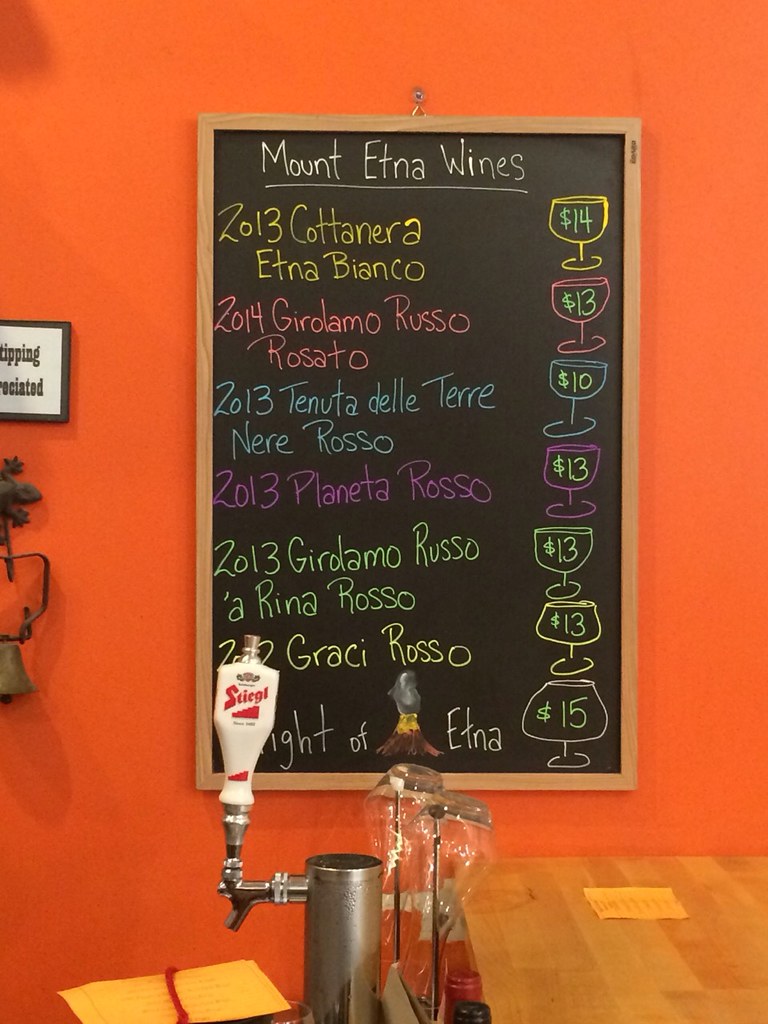 Mount Etna Wines
2013 Cottanera $14
Etna Bianco
2014 Girolamo Russo $13
Rosato
2013 Tenuta delle Terre $10
Nere Rosso
2013 Planeta Rosso $13
2013 Girolamo Russo $13
'a Rina Rosso
Graci Rosso $13
of Etna $15
tipping
Stiegl